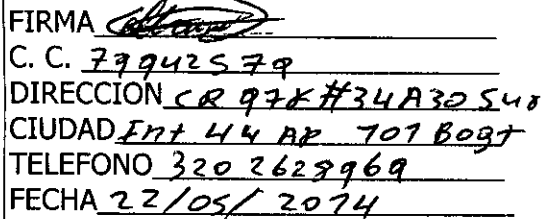 FIRMA
C. C. 79942579
DIRECCION CR 97K #34A30 Sur
CIUDAD Int 44 AP 101 Bogt
TELEFONO 320 2628969
FECHA 22/05/2014